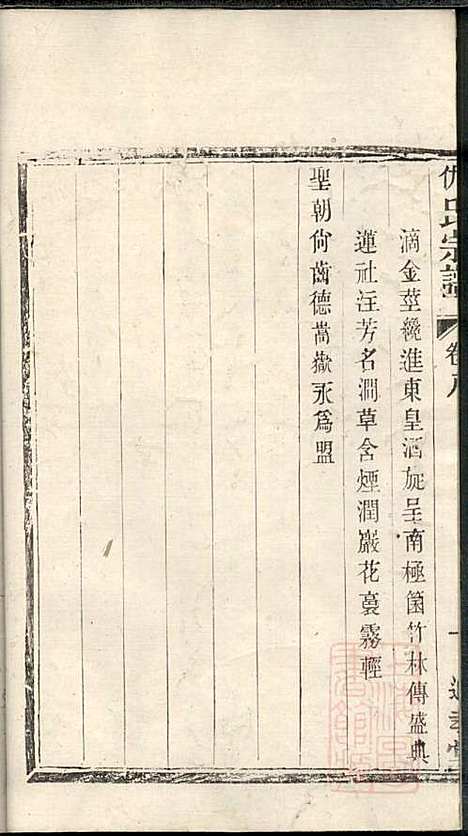 氏宗譜
卷八
滴金莖纔進東皇酒旋呈南極箇竹林傳盛典
蓮社注芳名澗草含煙潤巖花裛霧輕
聖朝尙齒德嵩嶽永爲盟